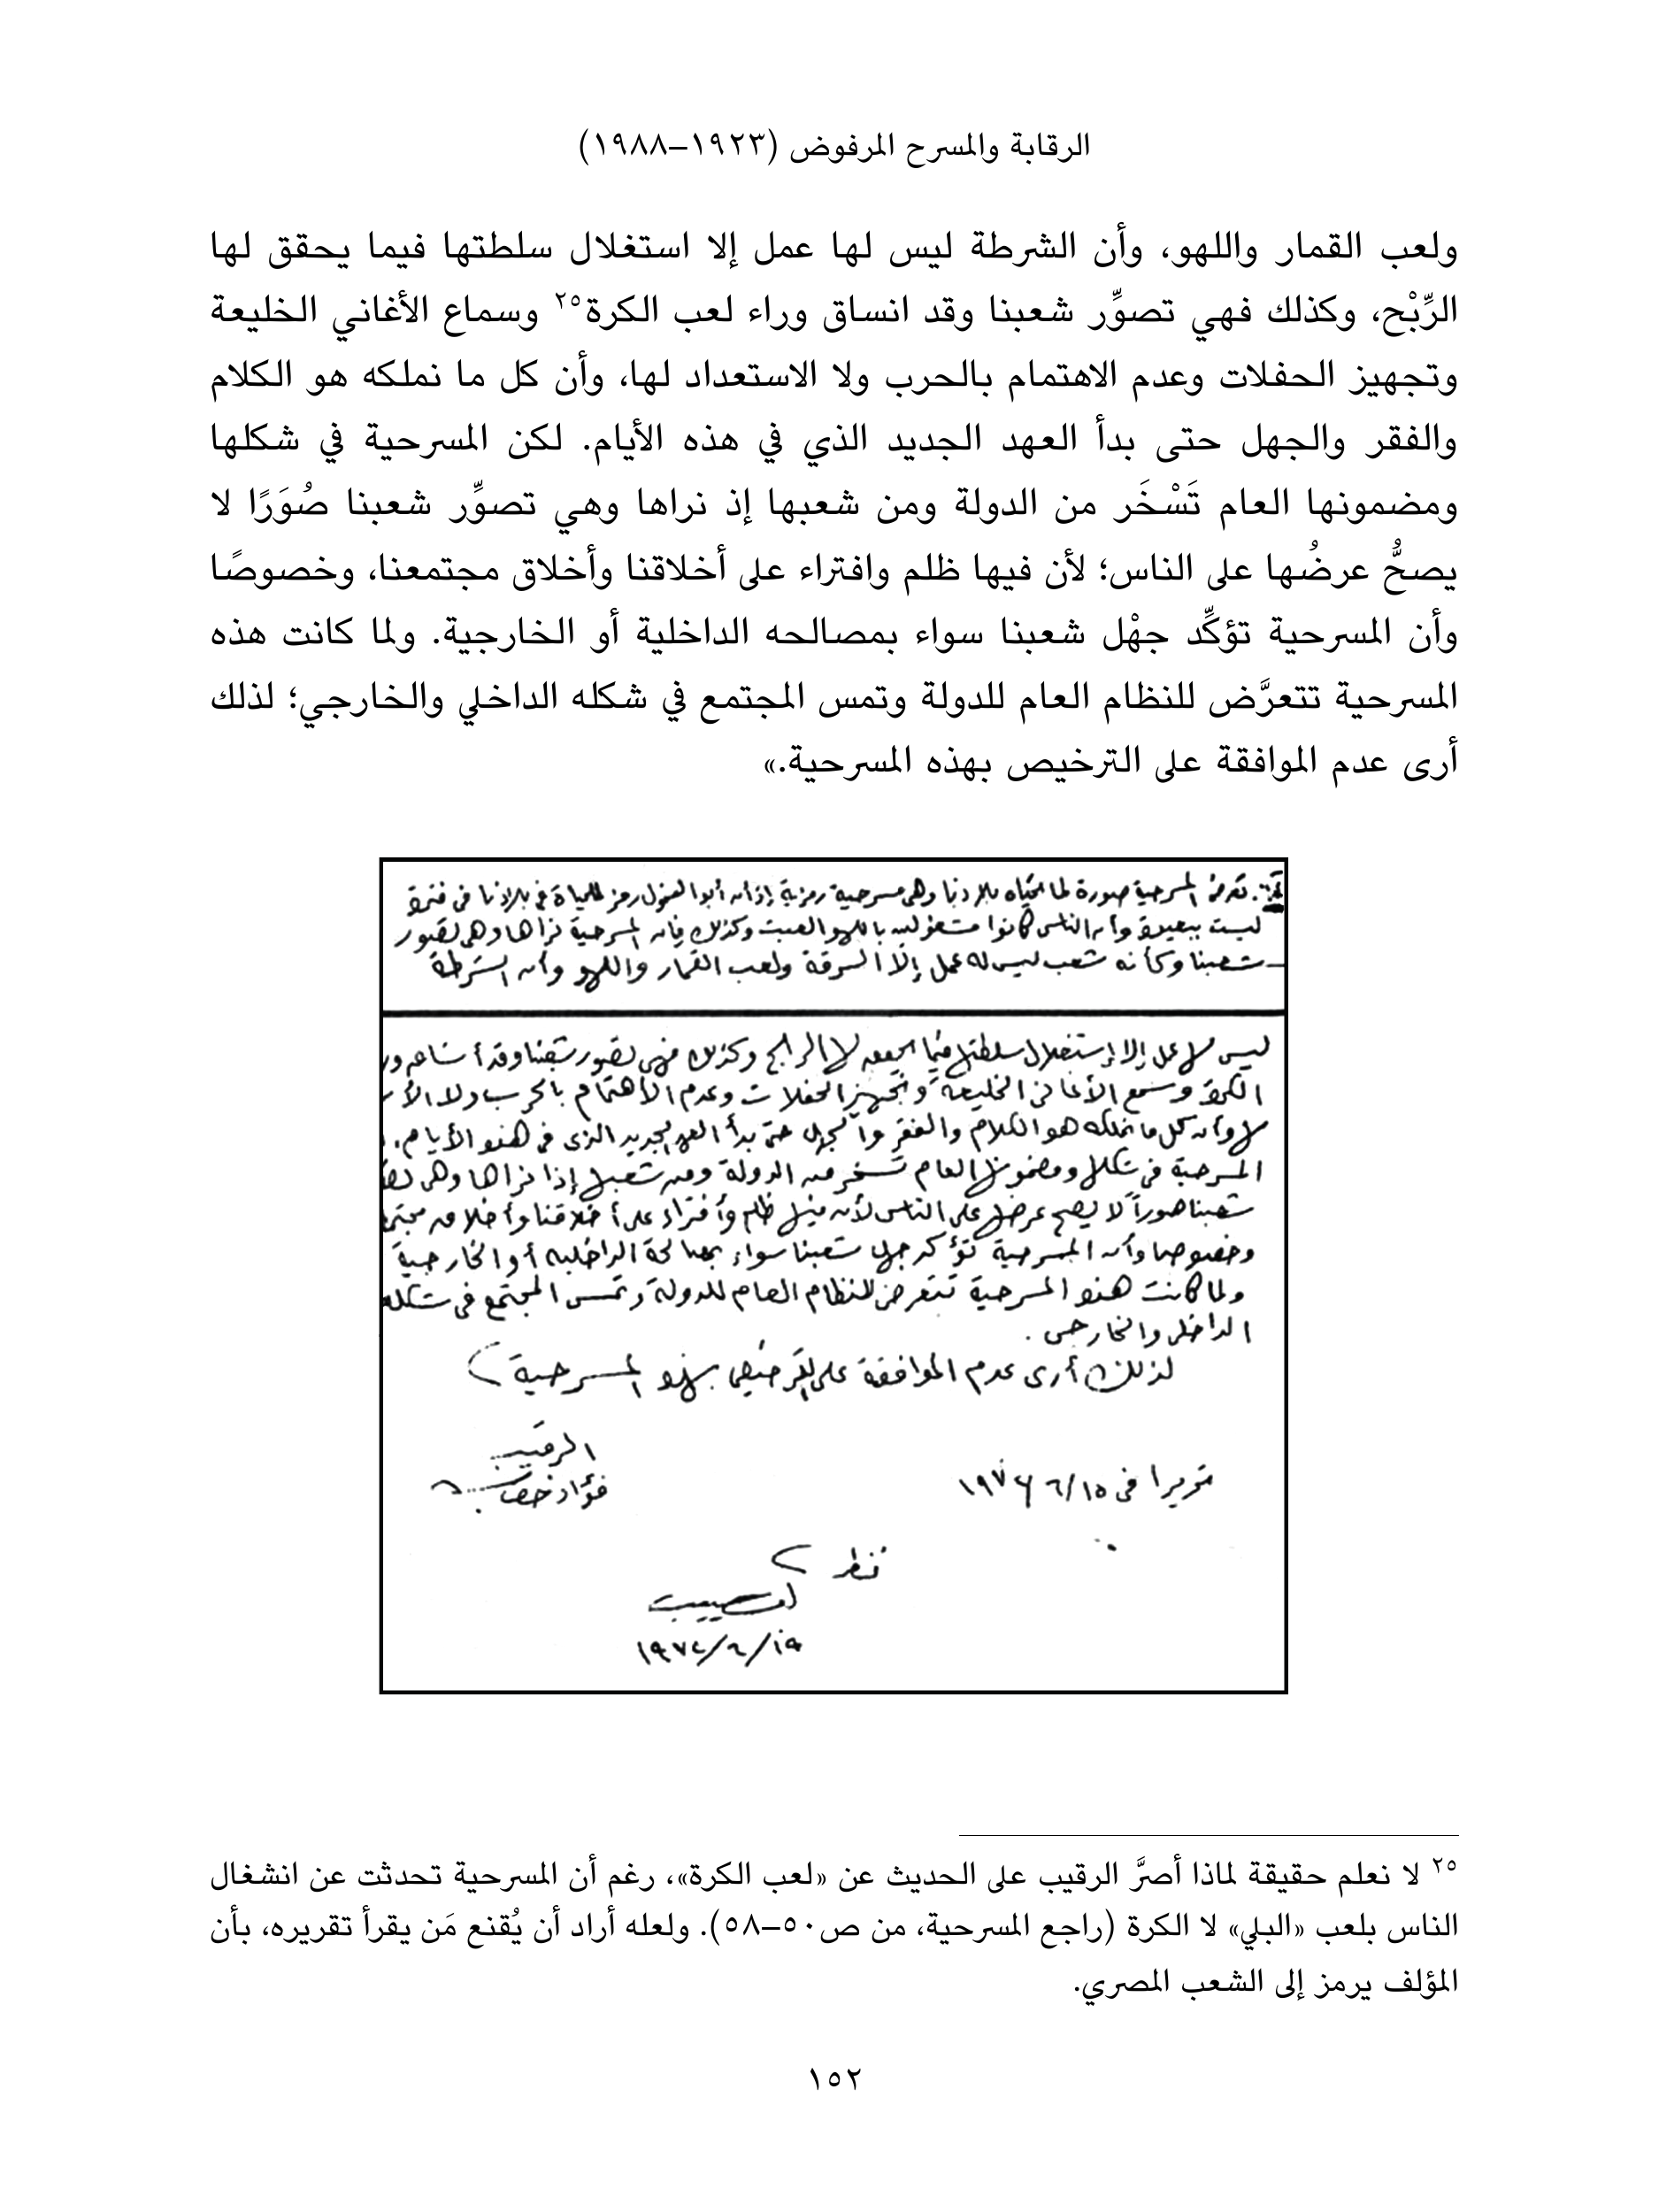 الرقابة والمسرح المرفوض (١٩٢٣–١٩٨٨)
ولعب القمار واللهو، وأن الشرطة ليس لها عمل إلا استغلال سلطتها فيما يحقق لها
الرِّبْح، وكذلك فهي تصوِّر شعبنا وقد انساق وراء لعب الكرة٢٥ وسماع الأغاني الخليعة
وتجهيز الحفلات وعدم الاهتمام بالحرب ولا الاستعداد لها، وأن كل ما نملكه هو الكلام
والفقر والجهل حتى بدأ العهد الجديد الذي في هذه الأيام. لكن المسرحية في شكلها
ومضمونها العام تَسْخَر من الدولة ومن شعبها إذ نراها وهي تصوِّر شعبنا صُوَرًا لا
يصحُّ عرضُها على الناس؛ لأن فيها ظلم وافتراء على أخلاقنا وأخلاق مجتمعنا، وخصوصًا
وأن المسرحية تؤكِّد جهْل شعبنا سواء بمصالحه الداخلية أو الخارجية. ولما كانت هذه
المسرحية تتعرَّض للنظام العام للدولة وتمس المجتمع في شكله الداخلي والخارجي؛ لذلك
أرى عدم الموافقة على الترخيص بهذه المسرحية.»
تعرض المسرحية صورة لما تحياه بلادنا وهي مسرحية رمزية إذ أن أبو الهول رمز للحياة في بلادنا في فترة
ليست ببعيدة وأن الناس كانوا مشغولين باللهو والعبث وكذلك فإن المسرحية نراها وهي تصور
شعبنا وكأنه شعب ليس له عمل إلا السرقة ولعب القمار واللهو وأن الشرطة
ليس لها عمل إلا إستغلال سلطتها فيما يحقق لها الرابح وكذلك فهي تصور شعبنا وقد
الكرة وسمع الأغاني الخليعة وتجهيز الحفلات وعدم الأهتمام بالحرب ولا
لها وأن كل ما نملكه هو الكلام والفقر والجهل حتى بدأ العهد الجديد الذى فى هذه الأيام.
المسرحية فى شكلها ومضمونها العام تسخر من الدولة ومن شعبها إذا نراها وهى
شعبنا صوراً لا يصح عرضها على الناس لأن فيها ظلم وأفتراء على أخلاقنا وأخلاق
وخصوصا وأن المسرحية تؤكد جهل شعبنا سواء بمصالحة الداخلية أو الخارجية
ولما كانت هذه المسرحية تتعرض للنظام العام للدولة وتمس المجتمع فى شكله
الداخلى والخارجى .
لذلك أرى عدم الموافقة على الترخيص بهذه المسرحية )
الرقيب
تحريرا فى ١٥/٦/
فؤاد
نظر
١٩/٦/١٩٧٤
٢٥ لا نعلم حقيقة لماذا أصرَّ الرقيب على الحديث عن «لعب الكرة»، رغم أن المسرحية تحدثت عن انشغال
الناس بلعب «البلي» لا الكرة (راجع المسرحية، من ص٥٠–٥٨). ولعله أراد أن يُقنع مَن يقرأ تقريره، بأن
المؤلف يرمز إلى الشعب المصري.
١٥٢